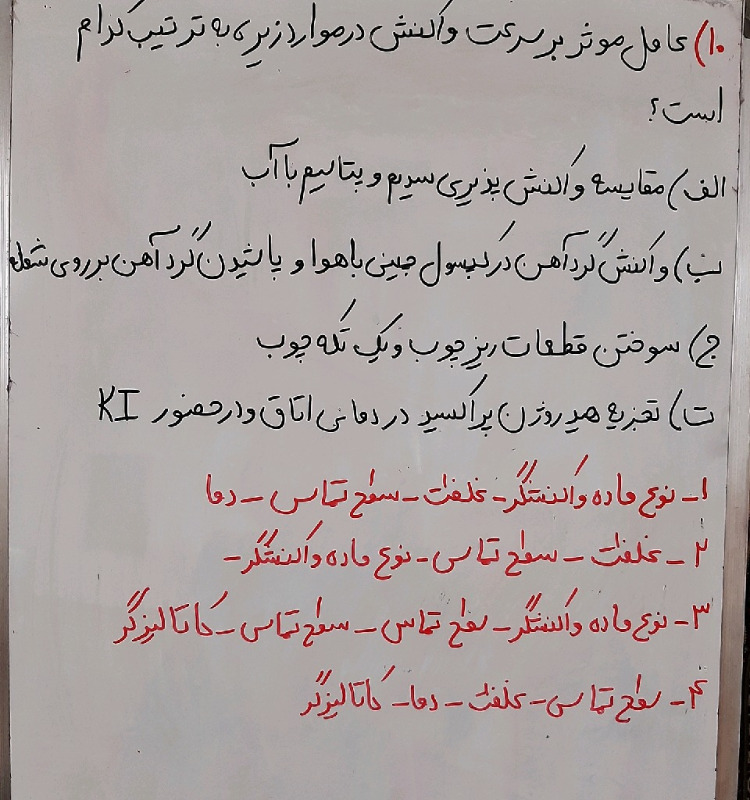 ۱۰) عامل موثر بر سرعت واکنش در موارد زیر به ترتیب کدام
است؟
الف) مقایسه واکنش پذیری سدیم و پتاسیم با آب
ب) واکنش گرد آهن در کپسول چینی با هوا و پاشیدن گرد آهن بر روی شعله
ج) سوختن قطعات ریز چوب و یک تکه چوب
ت) تجزیه هیدروژن پراکسید در دمای اتاق و در حضور KI
۱- نوع ماده واکنشگر - غلظت - سطح تماس - دما
۲- غلظت - سطح تماس - نوع ماده واکنشگر -
۳- نوع ماده واکنشگر - سطح تماس - سطح تماس - کاتالیزگر
۴- سطح تماس - غلظت - دما - کاتالیزگر